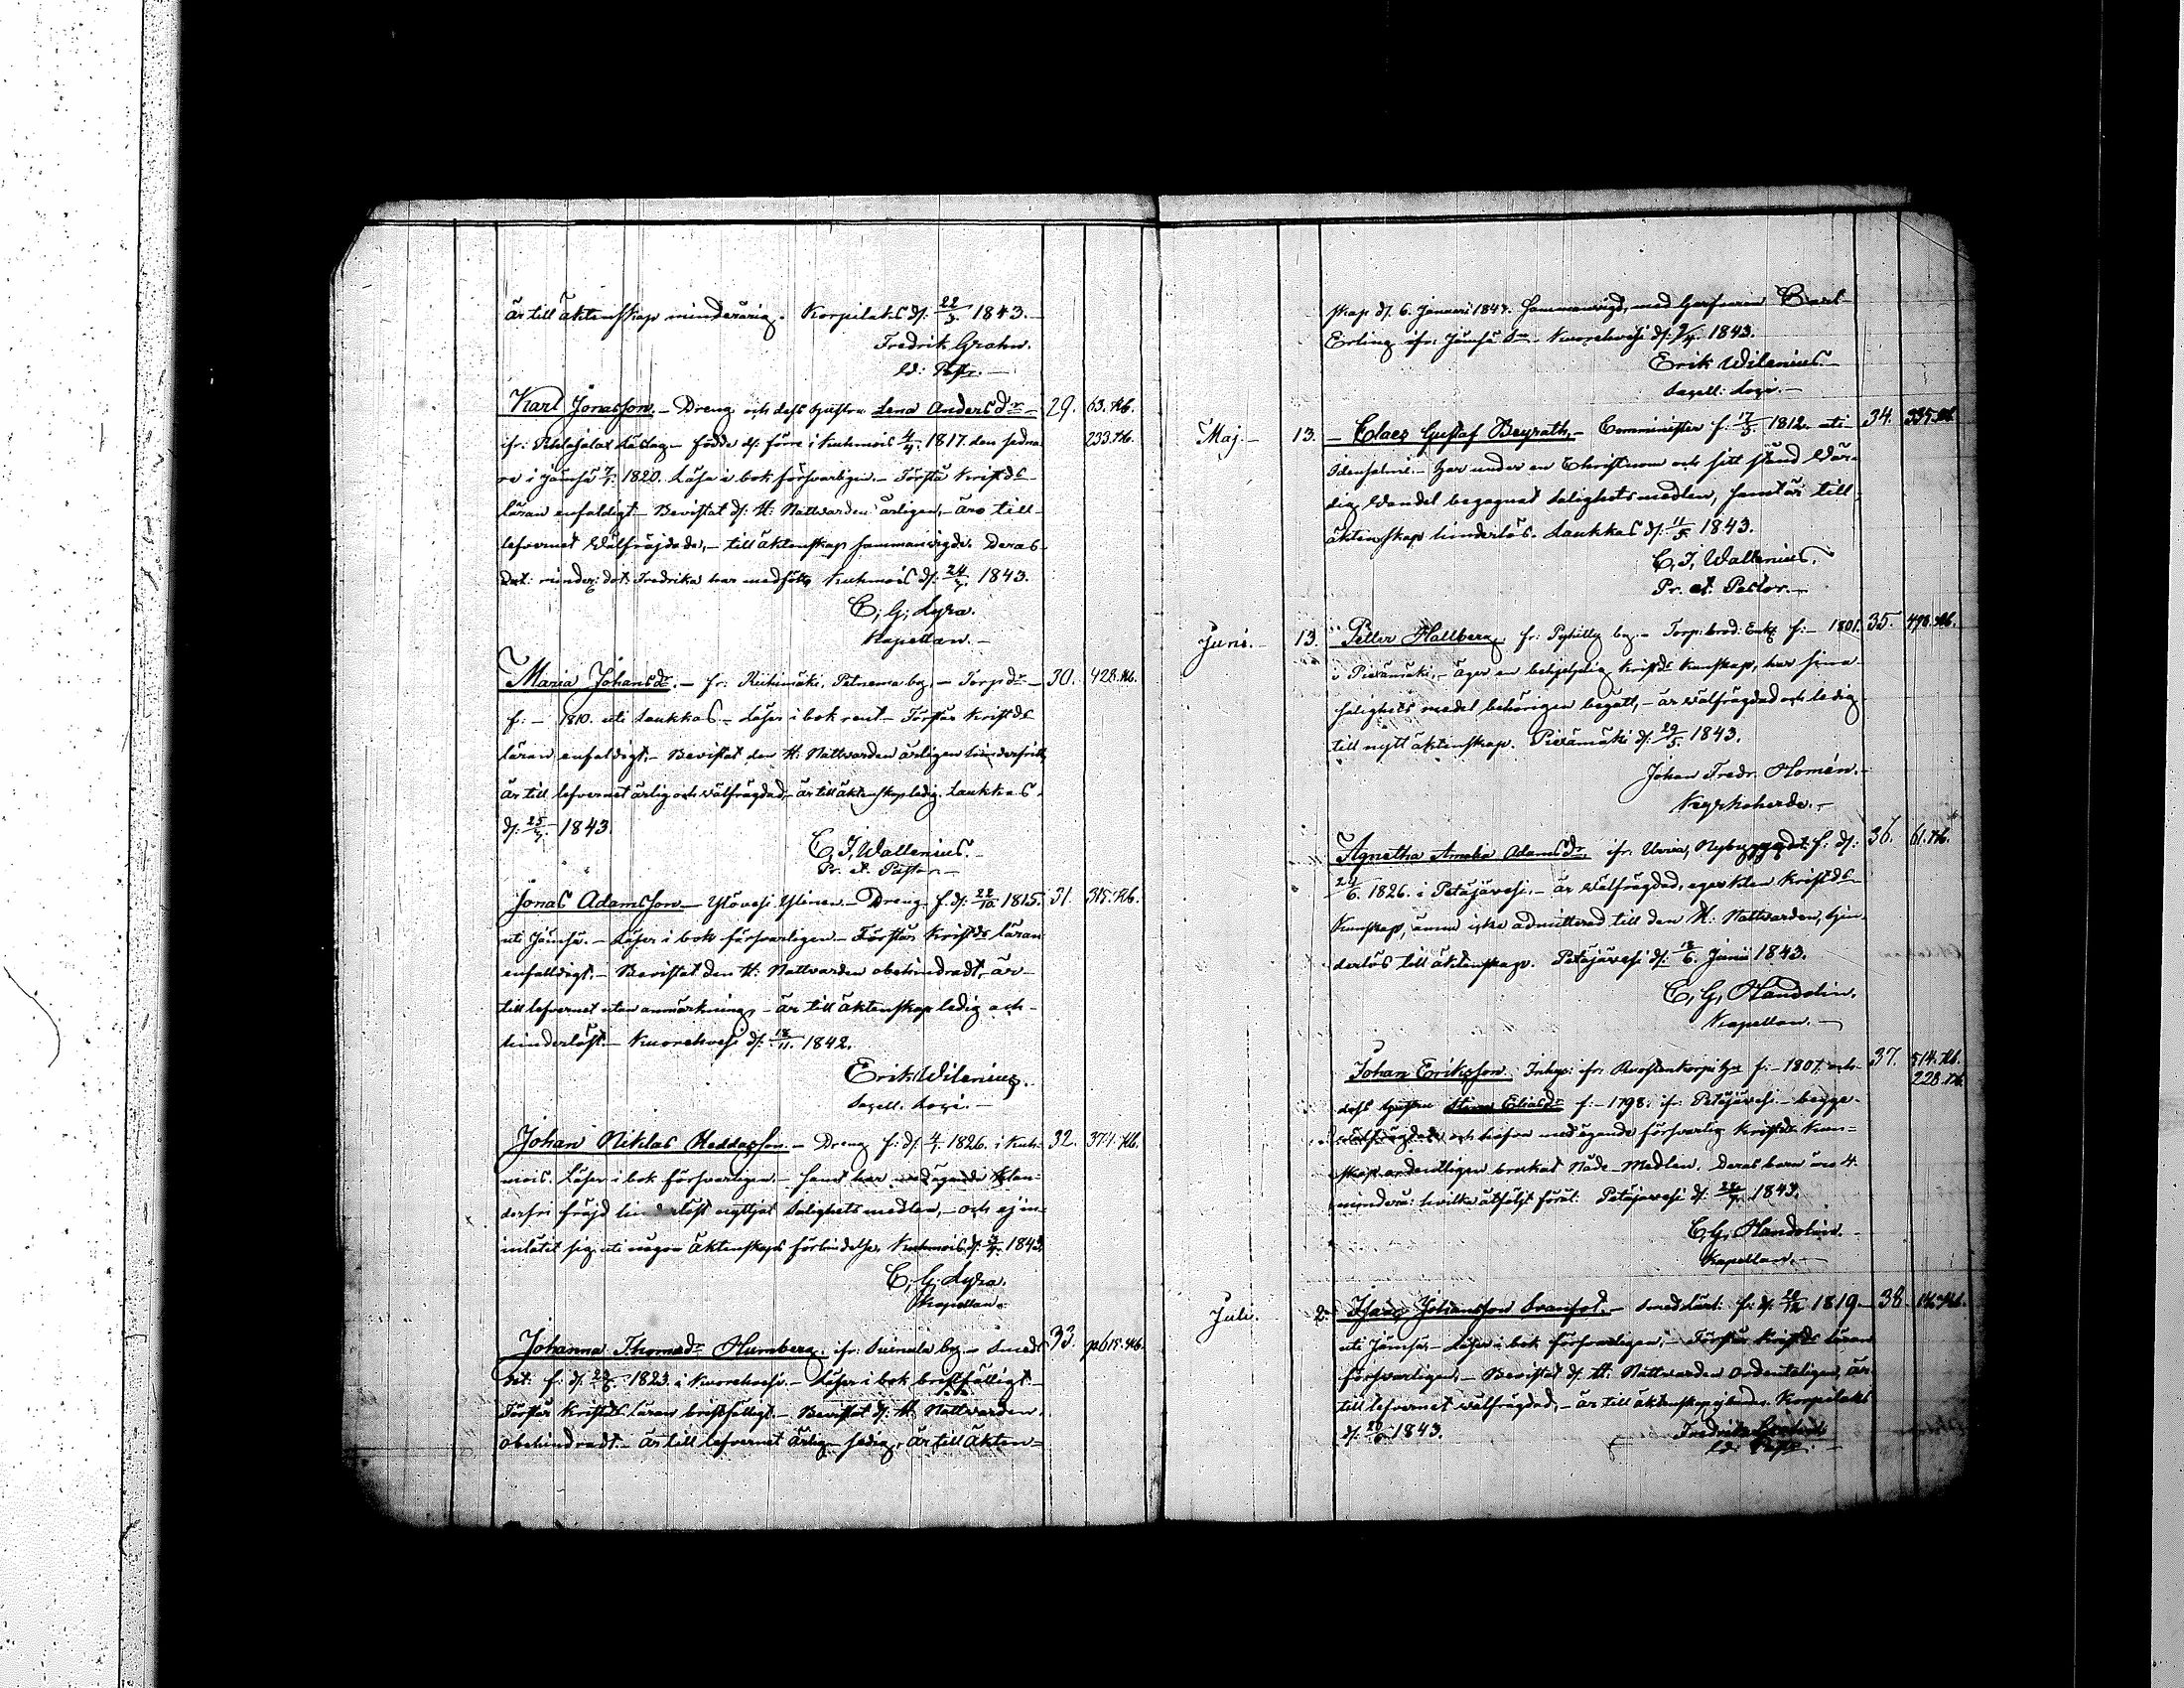 är till äktenskap minderårig. Korpilaks d: 22/3 1843.
Fredrik Grahn.
Ld: Past.
Karl Jonasson. - Dreng och dess hustru Lena Andersdr 29. 63. Kb.
födde d: förre i Kuhmois 4/4 1817. den sedna- 233. Kb.
re i Jämsä 1820. Läsa i bok försvarligen. - Förstå Kristds
läran enfaldigt. - Bevistat d: H: Nattvarden årligen, - äro till
lefvernet Välfräjdade, - till äktenskap sammanvigde. Deras
minder: dot: Fredrika har medföljt. Kuhmois d: 24/3 1843.
C, G, Lyra.
Kapellan. -
Maria Johansdr. - fr: by. - Torpdr - 30. 428. Kb.
f: - 1810. uti Laukkas - Läser i bok rent - Förstår Kristds
läran enfaldigt. - Bevistat den H: Nattvarden årligen
är till lefvernet ärlig och välfrägdad, - är till äktenskap ledig. Laukkas.
d: 25/3 1843.
C, J, Wallenius. -
Pr. et. Pastor. -
Jonas Adamsson. - Dreng f. d: 22/10 1815. 31. 315. Kb.
uti Jämsä. - Läser i bok försvarligen. - Förstår Kristds läran
enfaldigt. - Bevistat den H: Nattvarden obehindradt, - är
till lefvernet utan anmärkning, - är till äktenskap ledig och
hinderlöst. - Kuorehvesi d: 18/11. 1842.
Erik Wilenius.
Sacell. Loci. -
Johan Niklas - Dreng f: d: 1826. i Kuh- 32. 374. Kb.
mois. Läser i bok försvarligen. - samt har med ägande klan-
derfri fräjd hinderlöst nyttjat Salighets medlen, - och ej in-
inlåtit sig uti någon Äktenskaps förbindelse. Kuhmois d: 1843.
C, G, Lyra.
Kapellan.
Johanna Thomasdr Humberg. ifr: by. - Smeds 33. p. 615. Kb.
dot: f: d: 1823. i Kuorehvesi. - Läser i bok bristfälligt. -
Förstår Kristds Läran bristfälligt. - Bevistat d: H: Nattvarden.
obehindradt. - är till lefvernet ärlig - sedig, är till äkten=
skap d: 6. Januari 1843. Sammanvigd, med Carl
Erling ifr: Jämsä Kuorehvesi d: 1843.
Erik Wilenius. -
Sacell: Loci. -
Maj. - 13. - Claes Gustaf Beyrath, - Comminister f: 17/5 1812. uti 34. 335. Kb.
Idensalmi. - Har under en Christnom och sitt stånd Vär-
dig Vandel begagnat Salighetsmedlen, samt är till
äktenskap hinderlös. Laukkas d: 11/5 1843.
C, J, Wallenius,
Pr. et. Pastor. -
Juni. - 13. Petter Hallberg fr: by. - f: - 1801. 35. 498. Kb.
i Piexämäki. - äger en Kristds Kunskap, har sina
salighets medel behörigen begått, - är välfrägdad och ledig
till nytt äktenskap. Piexämäki d: 29/5. 1843.
Johan Fredr. Homén. -
Kyrkoherde. -
Agnetha Amalia Adamsdr. ifr: f. d: 36. 61. Kb.
24/6. 1826. i Petäjävesi. - är Välfrägdad, eger Kristds
Kunskap, ännu icke admitterad till den H: Nattvarden, hin-
derlös till äktenskap. Petäjävesi d: 13/6. Junii 1843.
C, G, Handolin.
Kapellan. -
Johan Eriksson. Inhys: ifr: f: - 1807. och 37. 514. Kb.
228. Kb.
dess hustru Stina Eliasdr f: - 1798. ifr: Petäjävesi. - begge
välfrägdade och hafva med ägande försvarlig Kristds Kun=
skap ordentligen brukat Nåde-Medlen. Deras barn äro 4.
minderå: hvilka åtföljt föräl: Petäjävesi d: 1843.
C, G, Handolin.
Kapellan. -
Juli. 2. Isaac Johansson - f: d: 1819. 38. Kb.
uti Jämsä, - Läser i bok försvarligen, - Förstår Kristds läran
försvarligen, - Bevistat d: H: Nattvarden ordenteligen, är
till lefvernet välfrägdad, - är till äktenskap Korpilaks
d: 1843.
Fredrik Grahn
Ld: Past. -